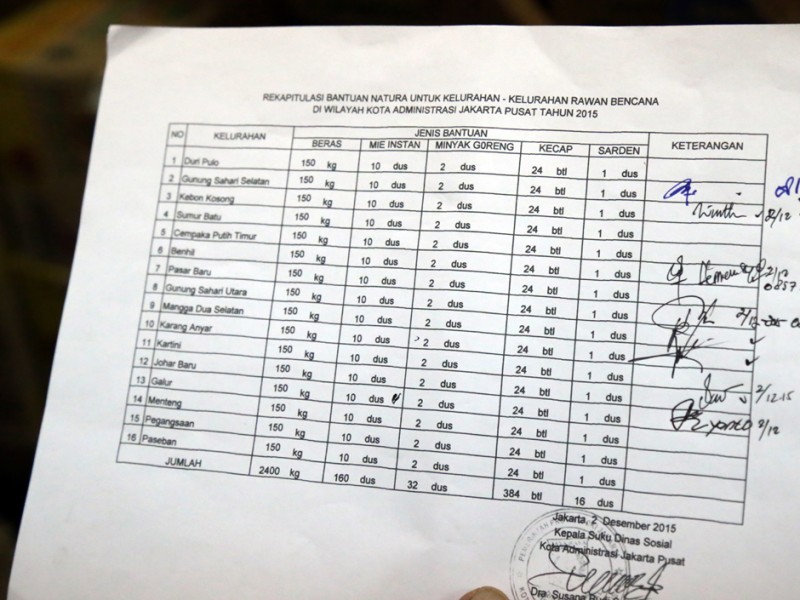 REKAPITULASI BANTUAN NATURA UNTUK KELURAHAN - KELURAHAN RAWAN BENCANA
DI WILAYAH KOTA ADMINISTRASI JAKARTA PUSAT TAHUN 2015
NO KELURAHAN JENIS BANTUAN KETERANGAN
BERAS MIE INSTAN MINYAK GORENG KECAP SARDEN
1 Duri Pulo 150 kg 10 dus 2 dus 24 btl 1 dus
2 Gunung Sahari Selatan 150 kg 10 dus 2 dus 24 btl 1 dus
3 Kebon Kosong 150 kg 10 dus 2 dus 24 btl 1 dus 2/12
4 Sumur Batu 150 kg 10 dus 2 dus 24 btl 1 dus
5 Cempaka Putih Timur 150 kg 10 dus 2 dus 24 btl 1 dus
6 Benhil 150 kg 10 dus 2 dus 24 btl 1 dus
7 Pasar Baru 150 kg 10 dus 2 dus 24 btl 1 dus 0857
8 Gunung Sahari Utara 150 kg 10 dus 2 dus 24 btl 1 dus
9 Mangga Dua Selatan 150 kg 10 dus 2 dus 24 btl 1 dus
10 Karang Anyar 150 kg 10 dus 2 dus 24 btl 1 dus
11 Kartini 150 kg 10 dus 2 dus 24 btl 1 dus
12 Johar Baru 150 kg 10 dus 2 dus 24 btl 1 dus
13 Galur 150 kg 10 dus 2 dus 24 btl 1 dus 2/12-15
14 Menteng 150 kg 10 dus 2 dus 24 btl 1 dus 2/12
15 Pegangsaan 150 kg 10 dus 2 dus 24 btl 1 dus
16 Paseban 150 kg 10 dus 2 dus 24 btl 1 dus
JUMLAH 2400 kg 160 dus 32 dus 384 btl 16 dus
Jakarta, 2 Desember 2015
Kepala Suku Dinas Sosial
Kota Administrasi Jakarta Pusat
Dra. Susana